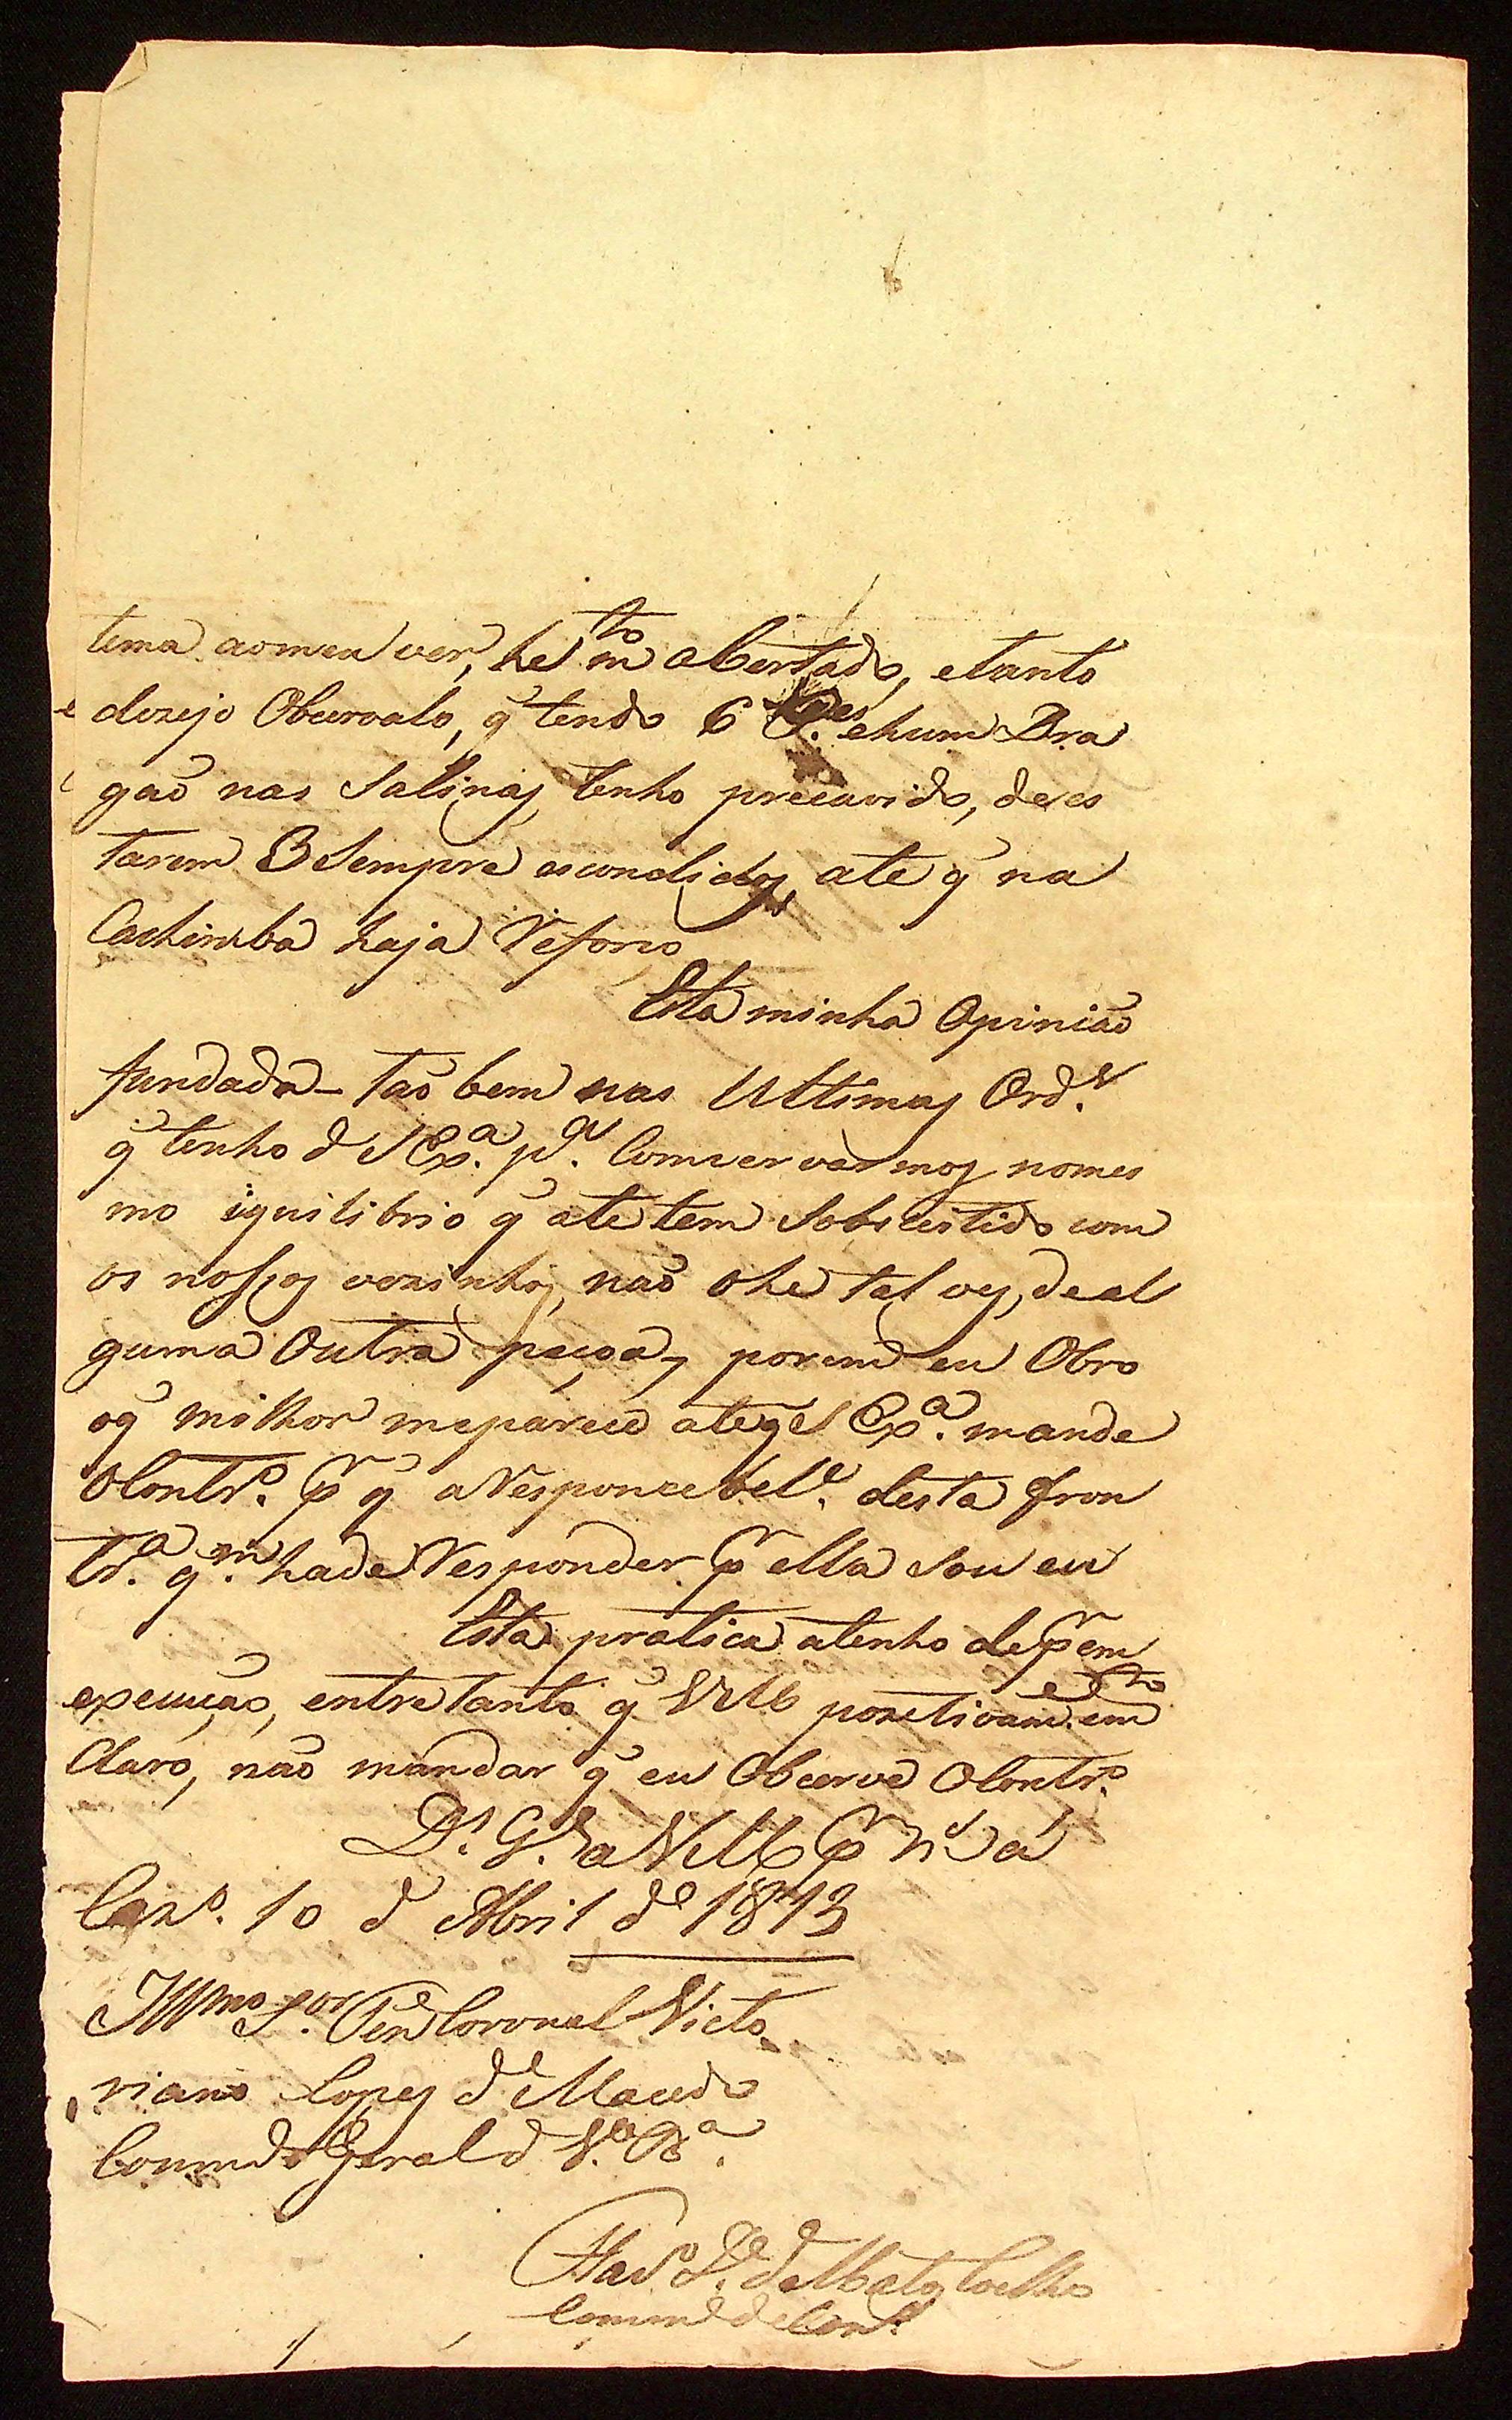 tema aomeu ver, he mto abertado, etanto
dezejo Obcervalo, q̃ tendo 6 P.es ehum Dra
gaõ nas Salinas, tenho precavido, dees
tarem 3 Sempre escondidos, ate q̃ na
Cachimba haja Reforço
Esta minha Opiniaõ
fundada - taõ bem nas Ultimas Ord.s
q̃ tenho d S Ex.a p.a Comcervarmos nomes
mo iquilibrio q̃ ate tem Sobcestido com
os nossos vezinhos, naõ ohe tal ves, deal
guma Outra peçoa, porem eu Obro
oq̃ milhor meparece ateq̃ S Ex.a mande
Ocontr.o p̃ q̃ aResponcebel.e desta fron
tr.a q.m hade Responder p̃ ella Sou eu
Esta pratica atenho dep̃ em
execuçaõ, entretanto q̃ VM pozetivam.te em
Claro, naõ mandar q̃ eu Obcerve Ocontr.o
D.s G.e a VM p̃ m.s a.s
Caz.o 10 d Abril de 1813
Illmo Sor. Ten.e Coronel Victo
riano Lopes de Macedo
Commd.e Geral d V.a B.a
Fran.co de Matos Coelho
Commd.e